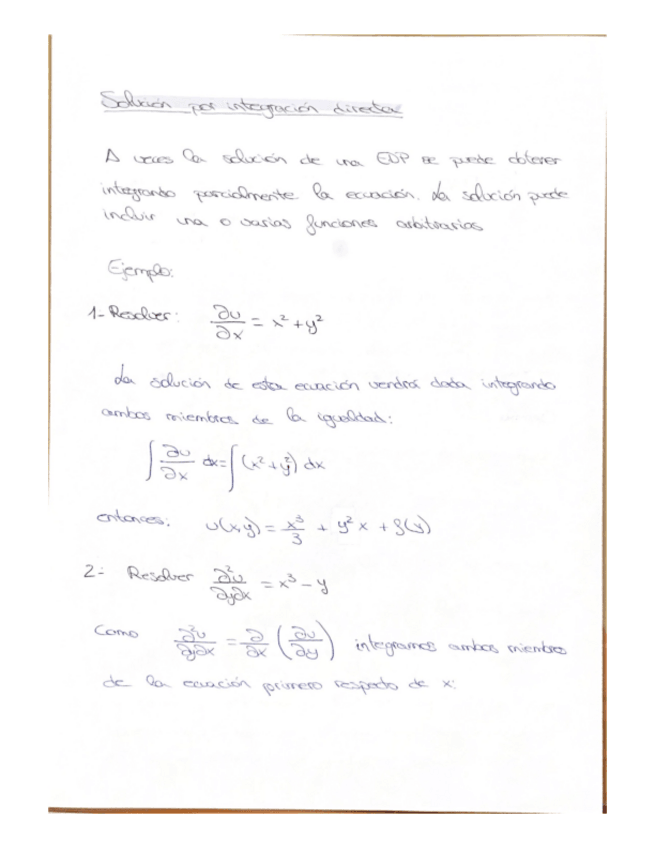 Solución por integración directa
A veces la solución de una EDP se puede obtener
integrando parcialmente la ecuación. La solución puede
incluir una o varias funciones arbitrarias
Ejemplo:
1- Resolver: ∂u/∂x = x² + y²
La solución de esta ecuación vendrá dada integrando
ambos miembros de la igualdad:
∫ ∂u/∂x dx = ∫ (x² + y²) dx
entonces: u(x,y) = x³/3 + y²x + f(y)
2- Resolver ∂²u/∂y∂x = x³ - y
Como ∂²u/∂y∂x = ∂/∂x (∂u/∂y) integramos ambos miembros
de la ecuación primero respecto de x: